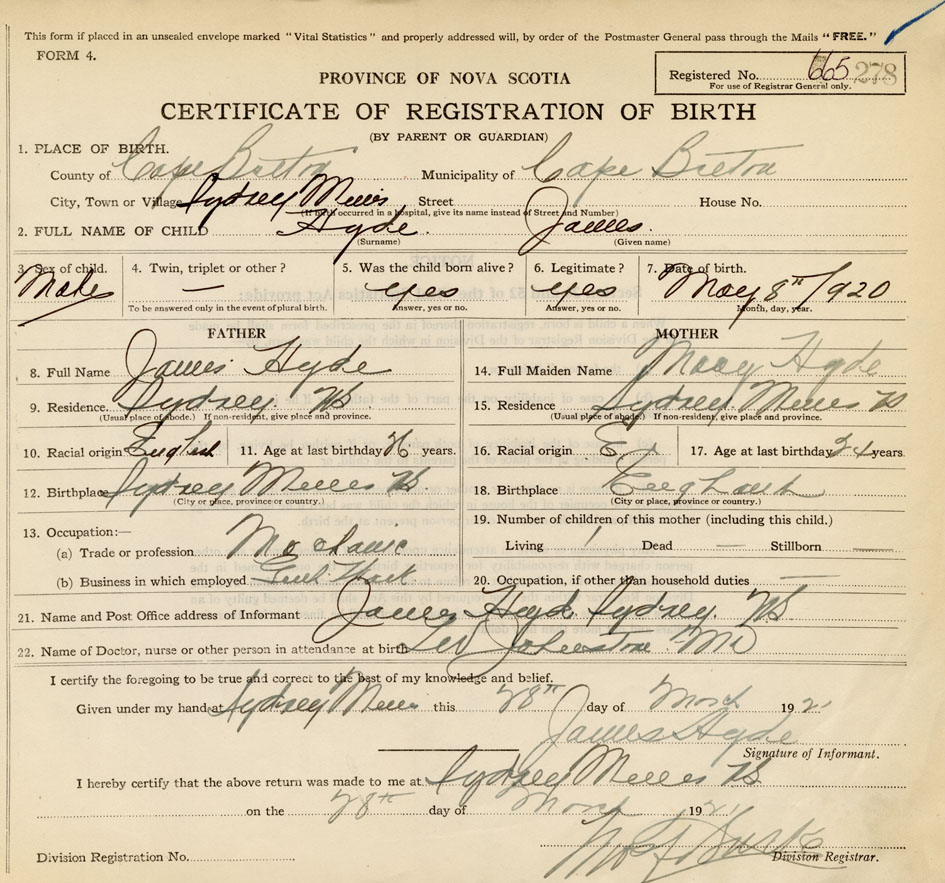 This form if placed in an unsealed envelope marked "Vital Statistics" and properly addressed will, by order of the Postmaster General pass through the Mails "FREE."
FORM 4.
Registered No. 665 278
For use of Registrar General only.
PROVINCE OF NOVA SCOTIA
CERTIFICATE OF REGISTRATION OF BIRTH
(BY PARENT OR GUARDIAN)
1. PLACE OF BIRTH.
County of Cape Breton Municipality of Cape Breton
City, Town or Village Sydney Mines Street House No.
(If birth occurred in a hospital, give its name instead of Street and Number)
2. FULL NAME OF CHILD Hyde. James.
(Surname) (Given name)
3. Sex of child. 4. Twin, triplet or other? 5. Was the child born alive? 6. Legitimate? 7. Date of birth.
— yes yes May 8th /920
To be answered only in the event of plural birth. Answer, yes or no. Answer, yes or no. Month, day, year.
FATHER MOTHER
8. Full Name James Hyde 14. Full Maiden Name Mary Hyde
9. Residence. Sydney NS. 15. Residence Sydney Mines NS
(Usual place of abode.) If non-resident, give place and province. (Usual place of abode.) If non-resident, give place and province.
10. Racial origin English 11. Age at last birthday 36 years. 16. Racial origin 17. Age at last birthday 34 years.
12. Birthplace Sydney Mines NS. 18. Birthplace
(City or place, province or country.) (City or place, province or country.)
13. Occupation:— 19. Number of children of this mother (including this child.)
(a) Trade or profession Living 1 Dead — Stillborn —
(b) Business in which employed 20. Occupation, if other than household duties —
21. Name and Post Office address of Informant James Hyde. Sydney. NS
22. Name of Doctor, nurse or other person in attendance at birth Johnston. MD
I certify the foregoing to be true and correct to the best of my knowledge and belief.
Given under my hand at Sydney Mines this 28th day of March 192
James Hyde
Signature of Informant.
I hereby certify that the above return was made to me at Sydney Mines NS.
on the 28th day of March 1921
Division Registration No. Division Registrar.